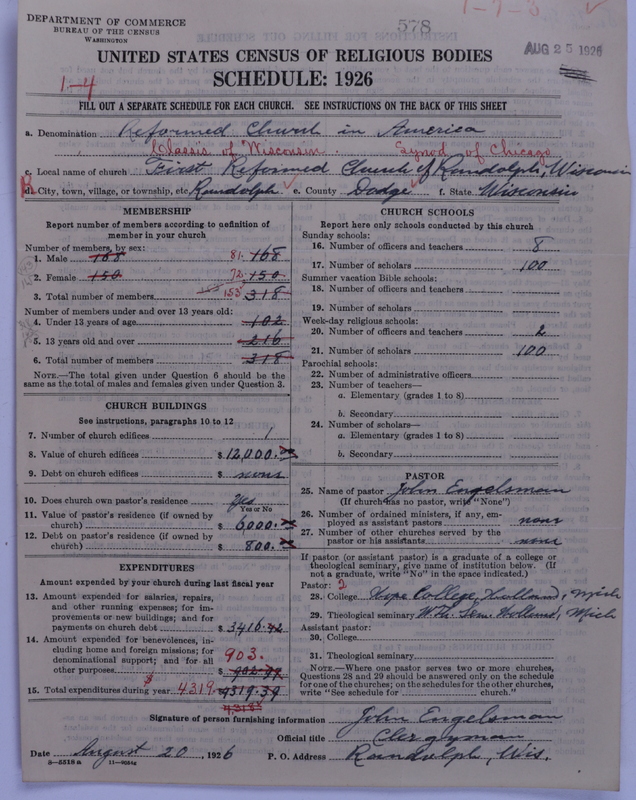 DEPARTMENT OF COMMERCE
BUREAU OF THE CENSUS
WASHINGTON
578
1-7-3
AUG 25 1926
UNITED STATES CENSUS OF RELIGIOUS BODIES
SCHEDULE: 1926
1-4
FILL OUT A SEPARATE SCHEDULE FOR EACH CHURCH. SEE INSTRUCTIONS ON THE BACK OF THIS SHEET
a. Denomination Reformed Church in America
Classis of Wisconsin. Synod of Chicago
c. Local name of church First Reformed Church of Randolph, Wisconsin
d. City, town, village, or township, etc Randolph e. County Dodge f. State Wisconsin
MEMBERSHIP
Report number of members according to definition of member in your church
Number of members, by sex:
1. Male 168 81 168
2. Female 150 72 150
3. Total number of members 153 318
Number of members under and over 13 years old:
4. Under 13 years of age 102
5. 13 years old and over 216
6. Total number of members 318
NOTE.—The total given under Question 6 should be the same as the total of males and females given under Question 3.
CHURCH BUILDINGS
See instructions, paragraphs 10 to 12
7. Number of church edifices 1
8. Value of church edifices $ 12,000.
9. Debt on church edifices $ none
10. Does church own pastor's residence Yes
Yes or No
11. Value of pastor's residence (if owned by church) $ 6,000.
12. Debt on pastor's residence (if owned by church) $ 800.
EXPENDITURES
Amount expended by your church during last fiscal year
13. Amount expended for salaries, repairs, and other running expenses; for improvements or new buildings; and for payments on church debt $ 3416.42
14. Amount expended for benevolences, including home and foreign missions; for denominational support; and for all other purposes $ 903.
15. Total expenditures during year $ 4319. 9319.39
CHURCH SCHOOLS
Report here only schools conducted by this church
Sunday schools:
16. Number of officers and teachers 8
17. Number of scholars 100
Summer vacation Bible schools:
18. Number of officers and teachers
19. Number of scholars
Week-day religious schools:
20. Number of officers and teachers 2
21. Number of scholars 100
Parochial schools:
22. Number of administrative officers
23. Number of teachers—
a. Elementary (grades 1 to 8)
b. Secondary
24. Number of scholars—
a. Elementary (grades 1 to 8)
b. Secondary
PASTOR
25. Name of pastor John Engelsman
(If church has no pastor, write "None")
26. Number of ordained ministers, if any, employed as assistant pastors none
27. Number of other churches served by the pastor or his assistants none
If pastor (or assistant pastor) is a graduate of a college or theological seminary, give name of institution below. (If not a graduate, write "No" in the space indicated.)
Pastor: 2
28. College Hope College, Holland, Mich
29. Theological seminary W. Th. Sem. Holland, Mich
Assistant pastor:
30. College
31. Theological seminary
NOTE.—Where one pastor serves two or more churches, Questions 28 and 29 should be answered only on the schedule for one of the churches; on the schedules for the other churches, write "See schedule for church."
Signature of person furnishing information John Engelsman
Official title Clergyman
Date August 20, 1926 P. O. Address Randolph, Wis.
8—5518 a 11—9054a